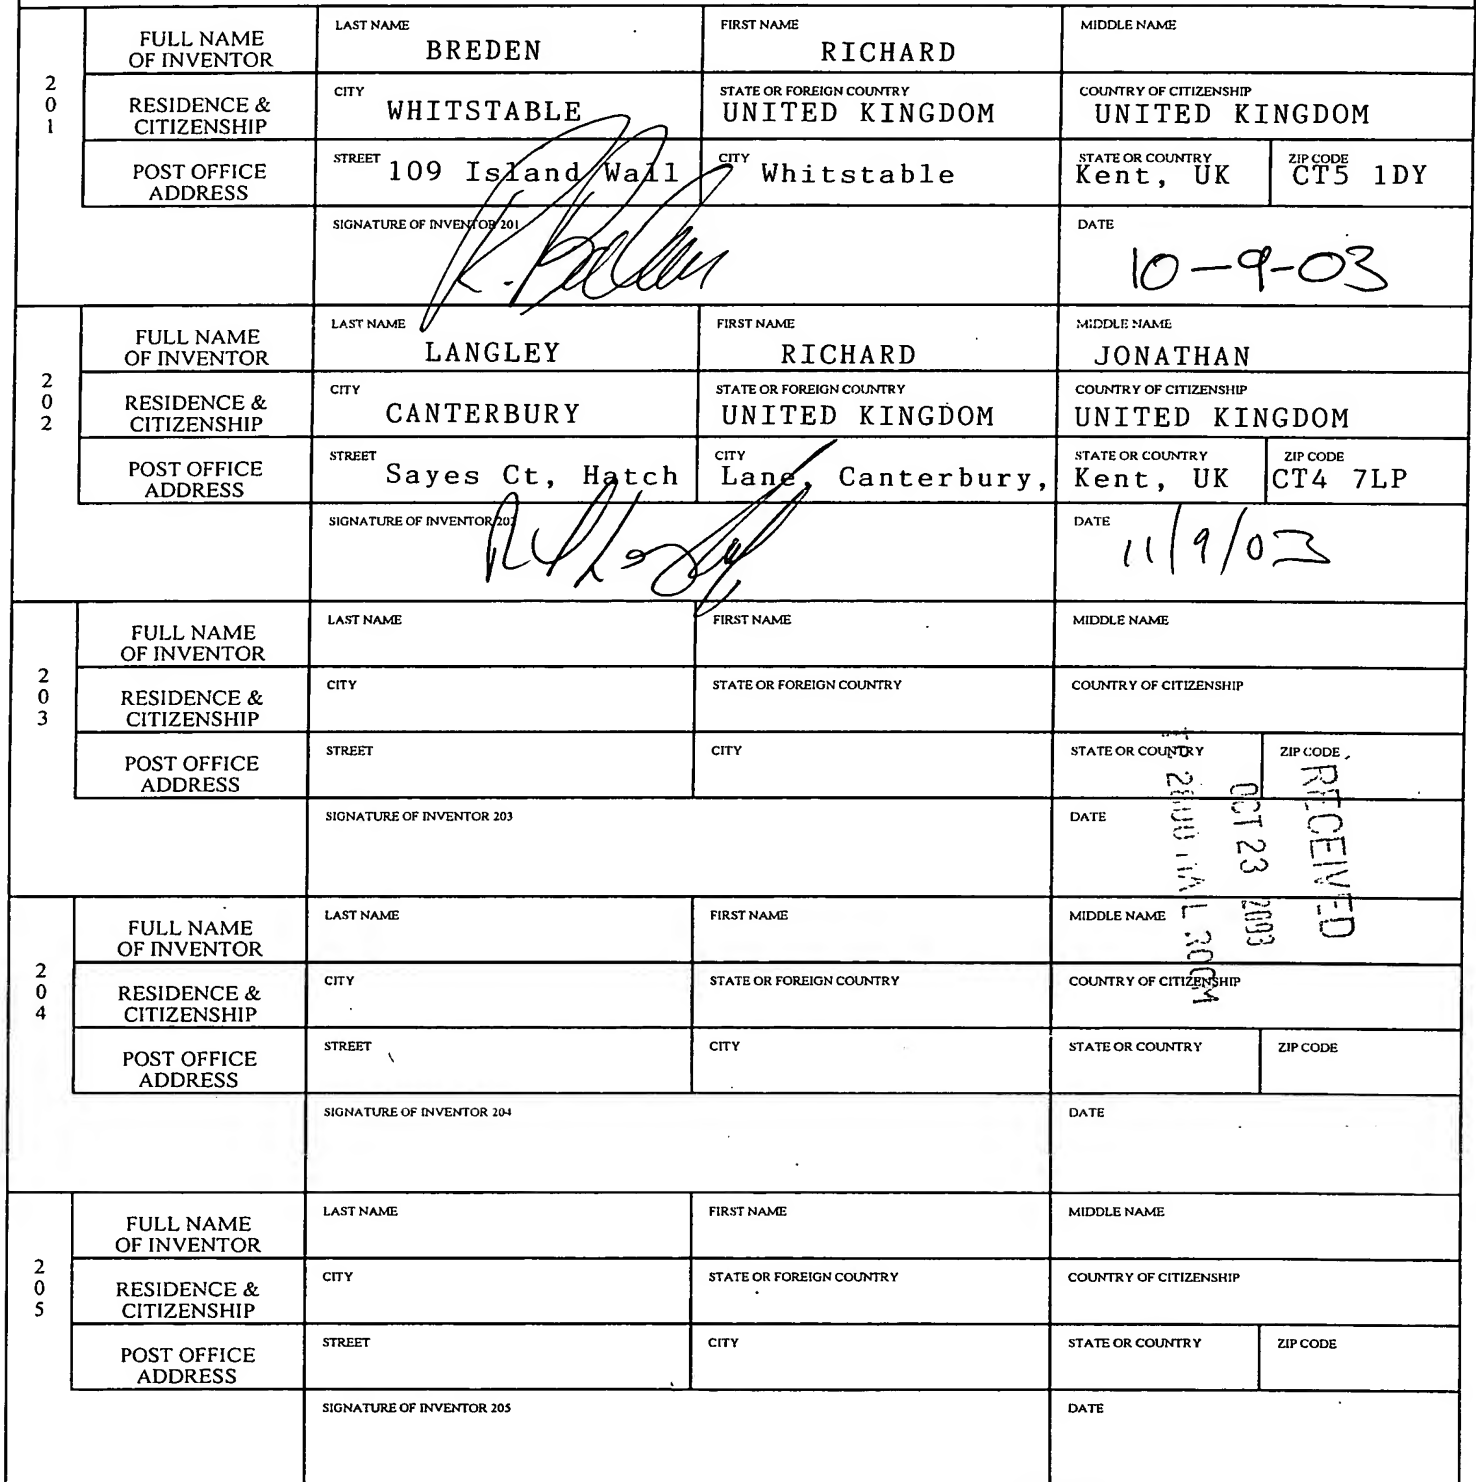 201
FULL NAME OF INVENTOR
LAST NAME BREDEN
FIRST NAME RICHARD
MIDDLE NAME
RESIDENCE & CITIZENSHIP
CITY WHITSTABLE
STATE OR FOREIGN COUNTRY UNITED KINGDOM
COUNTRY OF CITIZENSHIP UNITED KINGDOM
POST OFFICE ADDRESS
STREET 109 Island Wall
CITY Whitstable
STATE OR COUNTRY Kent, UK
ZIP CODE CT5 1DY
SIGNATURE OF INVENTOR 201
DATE 10-9-03
202
FULL NAME OF INVENTOR
LAST NAME LANGLEY
FIRST NAME RICHARD
MIDDLE NAME JONATHAN
RESIDENCE & CITIZENSHIP
CITY CANTERBURY
STATE OR FOREIGN COUNTRY UNITED KINGDOM
COUNTRY OF CITIZENSHIP UNITED KINGDOM
POST OFFICE ADDRESS
STREET Sayes Ct, Hatch
CITY Lane, Canterbury,
STATE OR COUNTRY Kent, UK
ZIP CODE CT4 7LP
SIGNATURE OF INVENTOR 202
DATE 11/9/03
203
FULL NAME OF INVENTOR
LAST NAME
FIRST NAME
MIDDLE NAME
RESIDENCE & CITIZENSHIP
CITY
STATE OR FOREIGN COUNTRY
COUNTRY OF CITIZENSHIP
POST OFFICE ADDRESS
STREET
CITY
STATE OR COUNTRY
ZIP CODE
SIGNATURE OF INVENTOR 203
DATE
RECEIVED
OCT 23 2003
ROOM
204
FULL NAME OF INVENTOR
LAST NAME
FIRST NAME
MIDDLE NAME
RESIDENCE & CITIZENSHIP
CITY
STATE OR FOREIGN COUNTRY
COUNTRY OF CITIZENSHIP
POST OFFICE ADDRESS
STREET
CITY
STATE OR COUNTRY
ZIP CODE
SIGNATURE OF INVENTOR 204
DATE
205
FULL NAME OF INVENTOR
LAST NAME
FIRST NAME
MIDDLE NAME
RESIDENCE & CITIZENSHIP
CITY
STATE OR FOREIGN COUNTRY
COUNTRY OF CITIZENSHIP
POST OFFICE ADDRESS
STREET
CITY
STATE OR COUNTRY
ZIP CODE
SIGNATURE OF INVENTOR 205
DATE